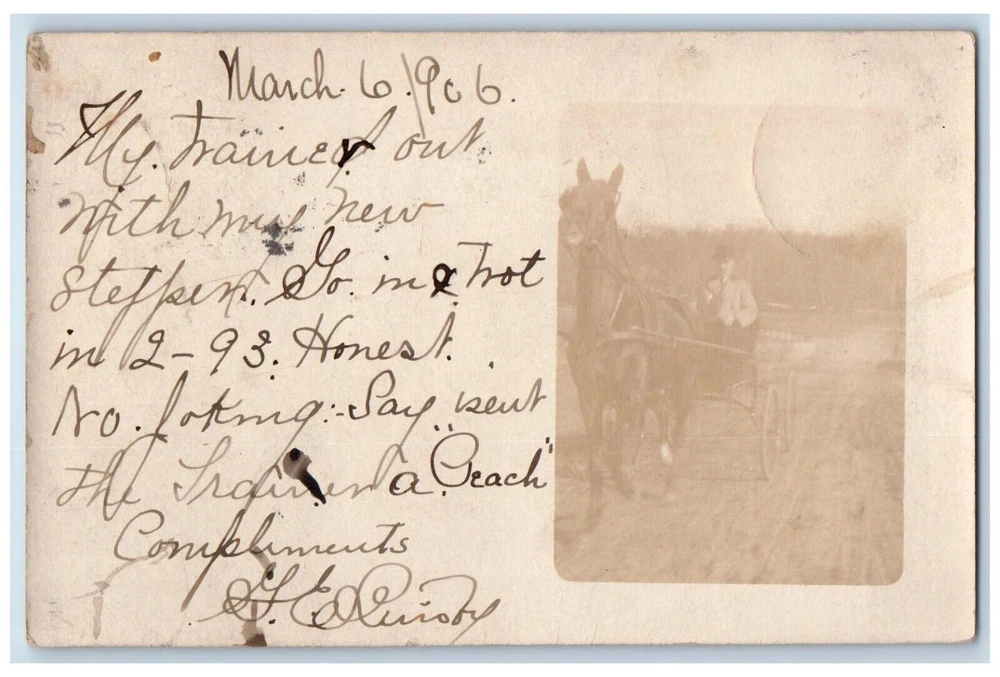 March. 6. 1906.
My. Trainer out
with my new
Stepper. Go. in & Trot
in 2-93. Honest.
No. Joking:- Say isent
the Trainer a "Peach"
Compliments
G. E.